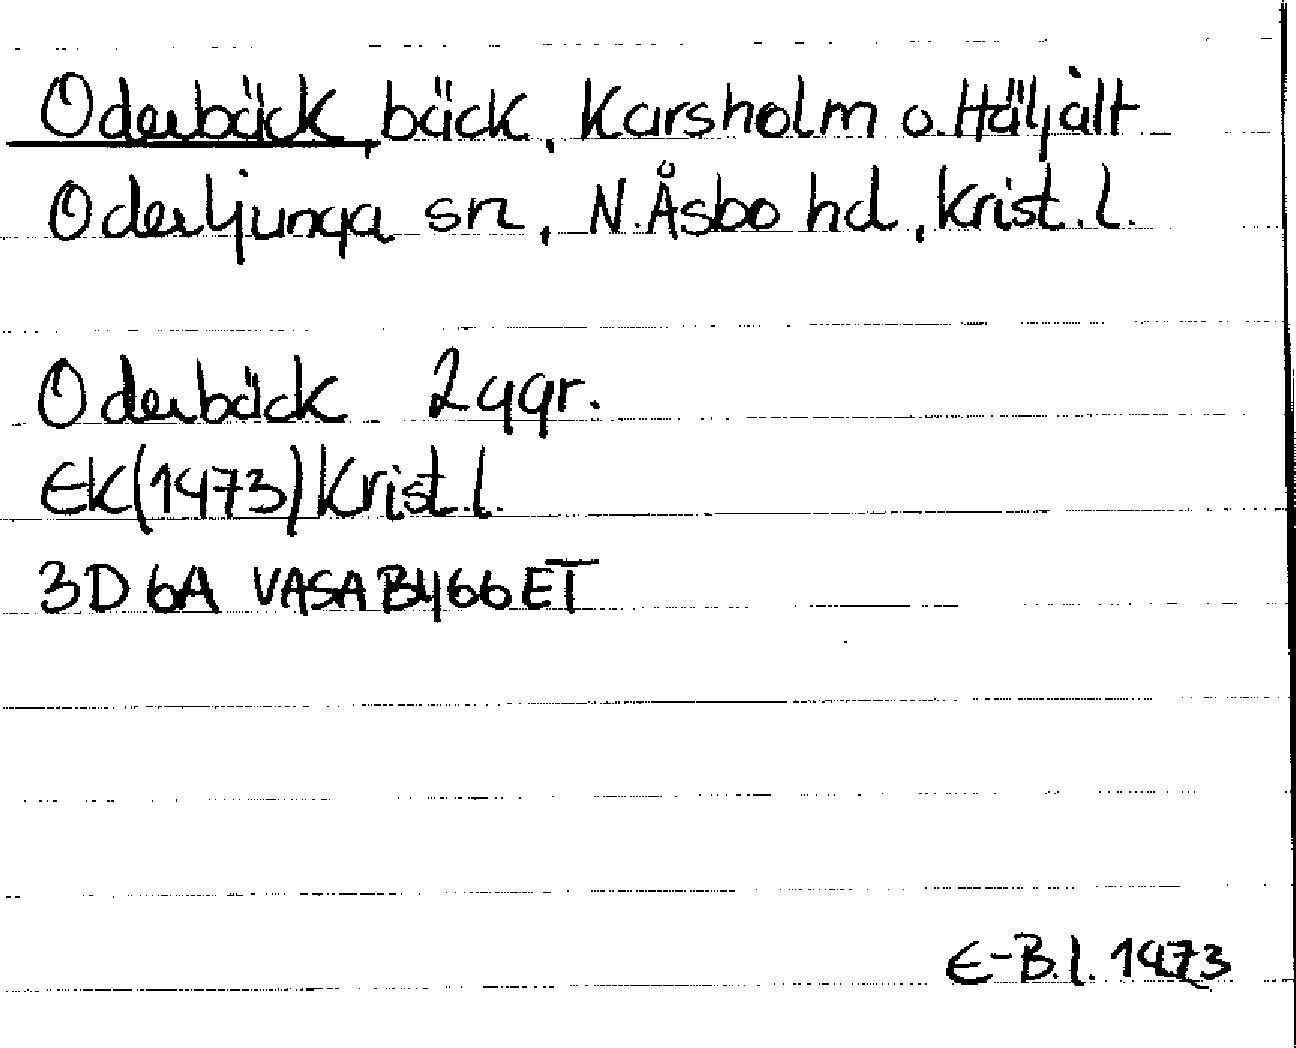 Oderbäck, bäck, Karsholm o. Häljalt
Oderljunga sn, N.Åsbo hd, Krist.l.
Oderbäck 2ggr.
EK(1973)Krist.l.
3D 6A VASABYGGET
E-B.l. 1973